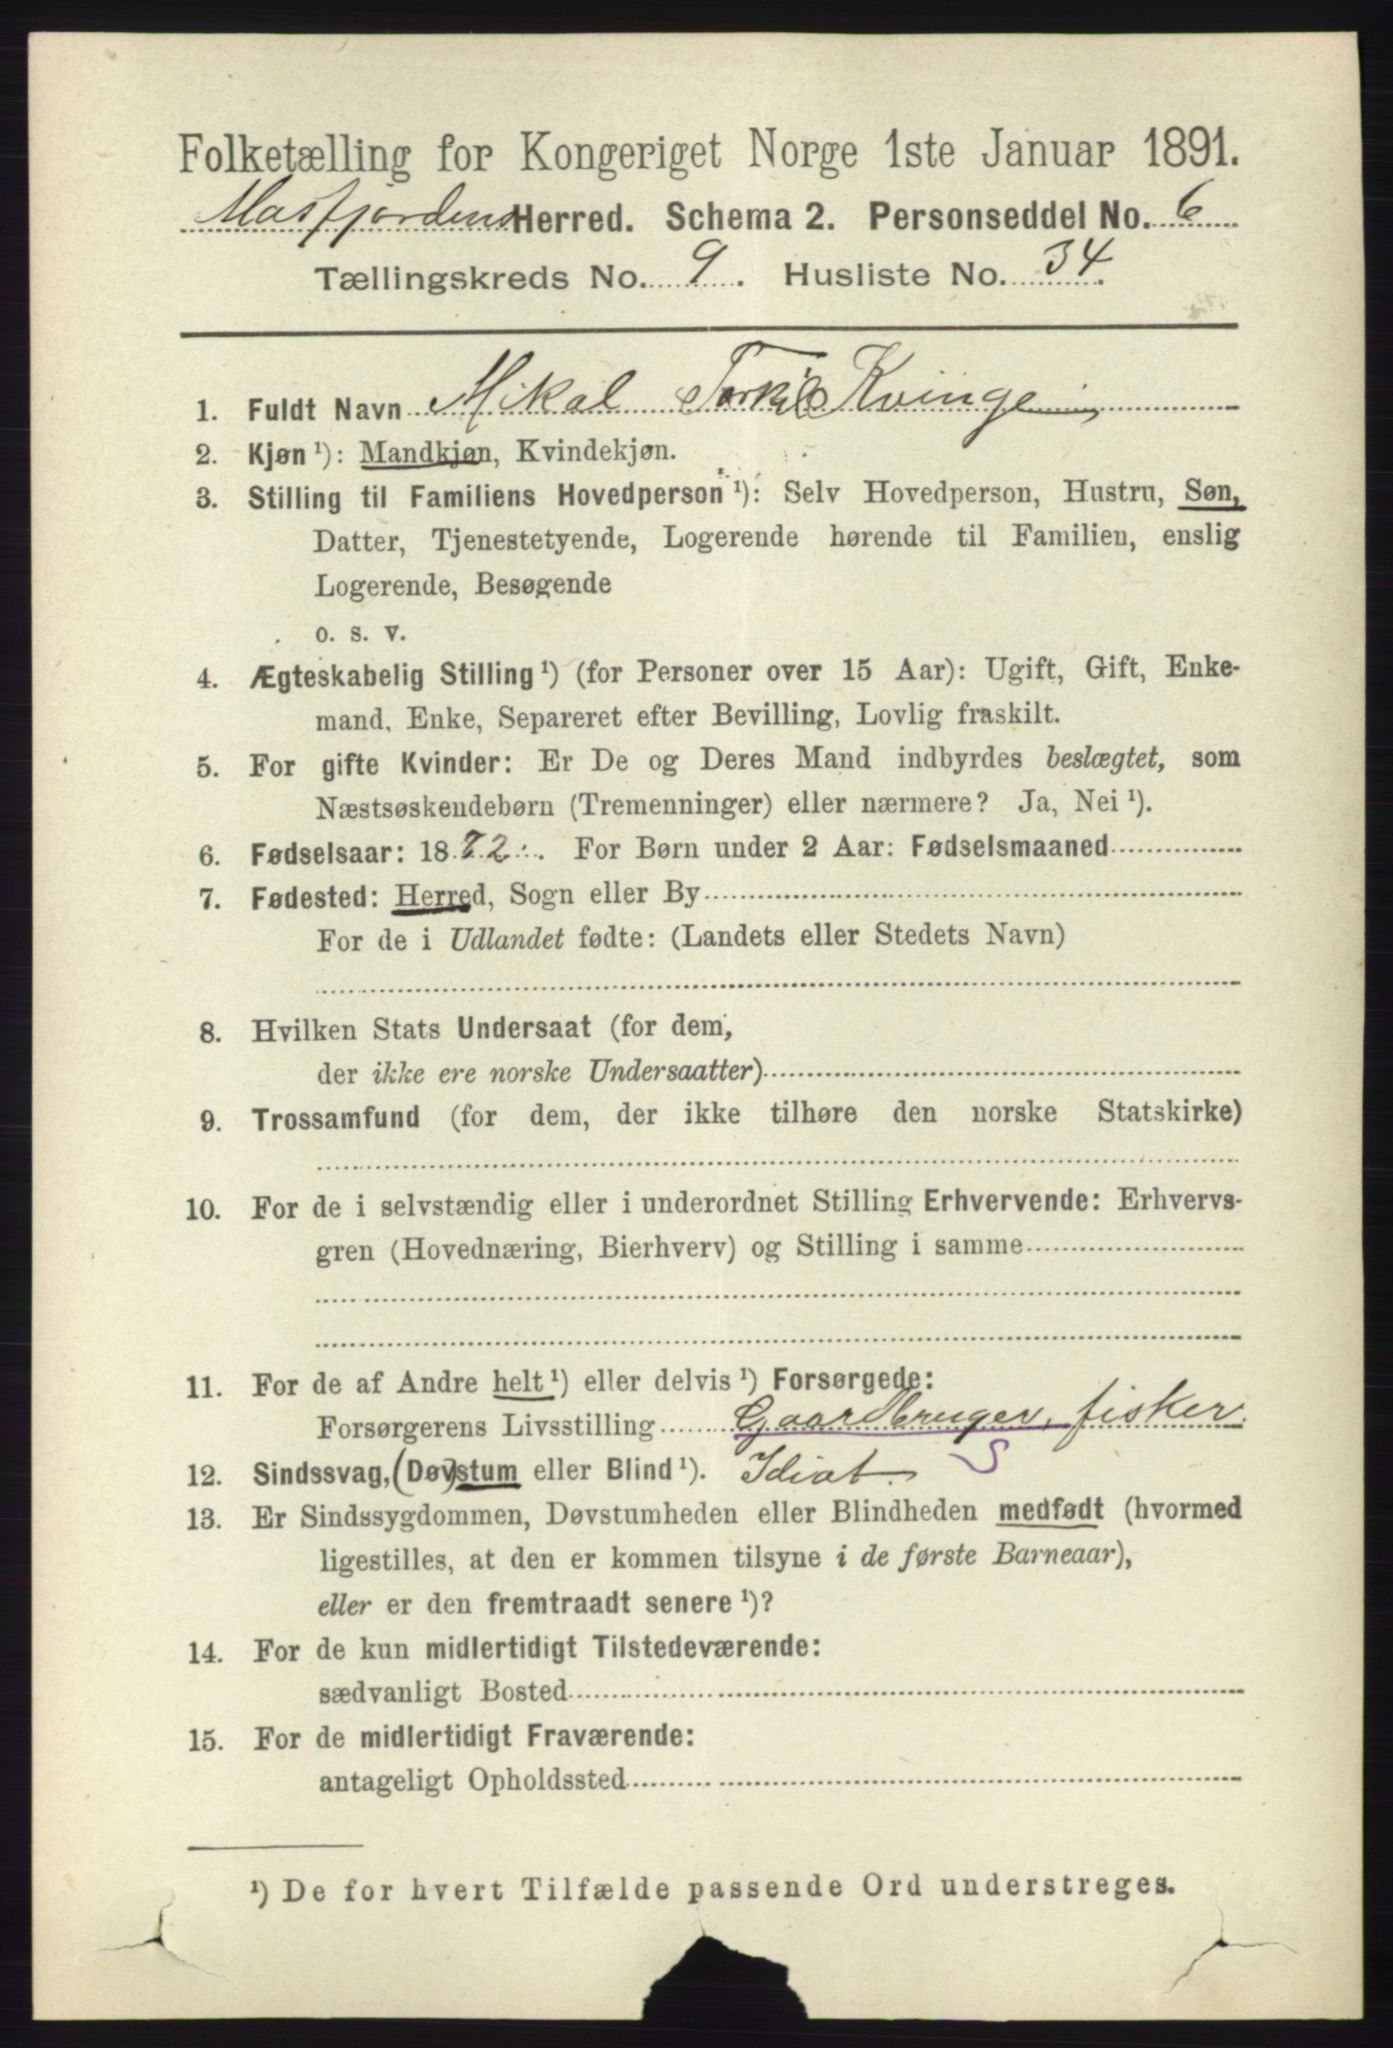 Folketælling for Kongeriget Norge 1ste Januar 1891.
Masfjordens Herred. Schema 2. Personseddel No. 6
Tællingskreds No. 9. Husliste No. 34.
1. Fuldt Navn Mikal Torkils Kvinge
2. Kjøn ¹): Mandkjøn, Kvindekjøn.
3. Stilling til Familiens Hovedperson ¹): Selv Hovedperson, Hustru, Søn,
Datter, Tjenestetyende, Logerende hørende til Familien, enslig
Logerende, Besøgende
o. s. v.
4. Ægteskabelig Stilling ¹) (for Personer over 15 Aar): Ugift, Gift, Enke-
mand, Enke, Separeret efter Bevilling, Lovlig fraskilt.
5. For gifte Kvinder: Er De og Deres Mand indbyrdes beslægtet, som
Næstsøskendebørn (Tremenninger) eller nærmere? Ja, Nei ¹).
6. Fødselsaar: 1882. For Børn under 2 Aar: Fødselsmaaned
7. Fødested: Herred, Sogn eller By
For de i Udlandet fødte: (Landets eller Stedets Navn)
8. Hvilken Stats Undersaat (for dem,
der ikke ere norske Undersaatter)
9. Trossamfund (for dem, der ikke tilhøre den norske Statskirke)
10. For de i selvstændig eller i underordnet Stilling Erhvervende: Erhvervs-
gren (Hovednæring, Bierhverv) og Stilling i samme
11. For de af Andre helt ¹) eller delvis ¹) Forsørgede:
Forsørgerens Livsstilling Gaardbruger, fisker.
12. Sindssvag, (Døv)stum eller Blind ¹). Idiot. S
13. Er Sindssygdommen, Døvstumheden eller Blindheden medfødt (hvormed
ligestilles, at den er kommen tilsyne i de første Barneaar),
eller er den fremtraadt senere ¹)?
14. For de kun midlertidigt Tilstedeværende:
sædvanligt Bosted
15. For de midlertidigt Fraværende:
antageligt Opholdssted
¹) De for hvert Tilfælde passende Ord understreges.